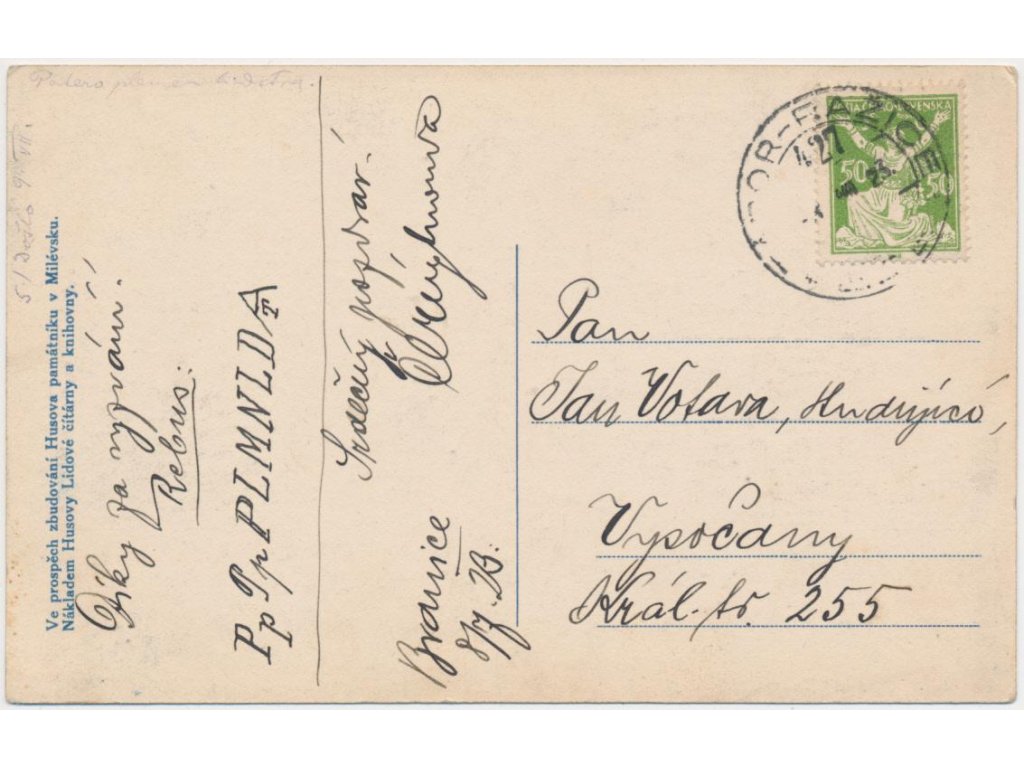 Ve prospěch zbudování Husova památníku v Milévsku.
Nákladem Husovy Lidové čítárny a knihovny.
Díky za vyzvání.
Rebus:
Pp Pp PLMNLDA
T
Srdečný pozdrav.
Branice
8/7. 23.
TÁBOR-RAŽICE
427
23.
50 50
Pan
Jan Votava, Hudující,
Vysočany
Král. tř. 255